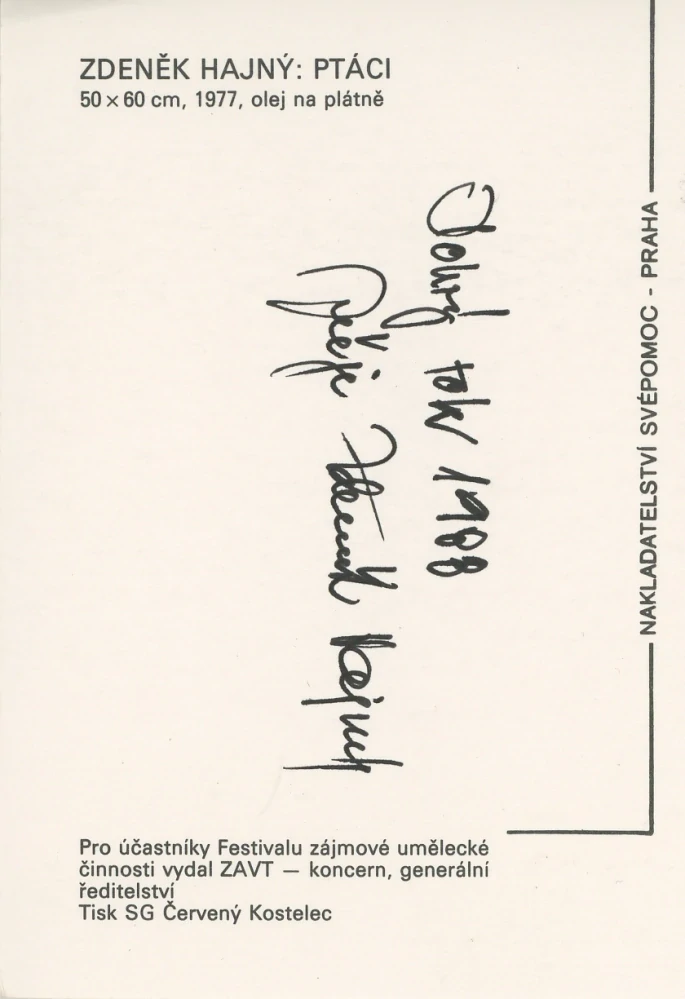 ZDENĚK HAJNÝ: PTÁCI
50 × 60 cm, 1977, olej na plátně
Dobrý rok 1988
přeje Zdeněk Hajný
NAKLADATELSTVÍ SVÉPOMOC - PRAHA
Pro účastníky Festivalu zájmové umělecké
činnosti vydal ZAVT — koncern, generální
ředitelství
Tisk SG Červený Kostelec